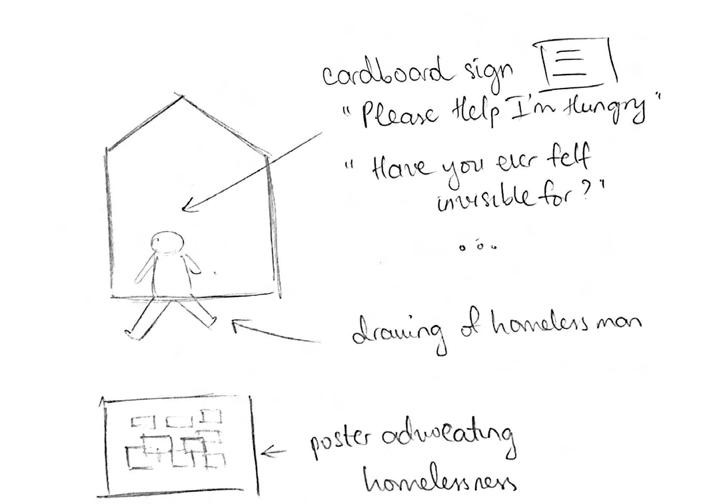 cardboard sign
"Please Help I'm Hungry"
"Have you ever felt
invisible for?"
...
drawing of homeless man
poster advocating
homelessness